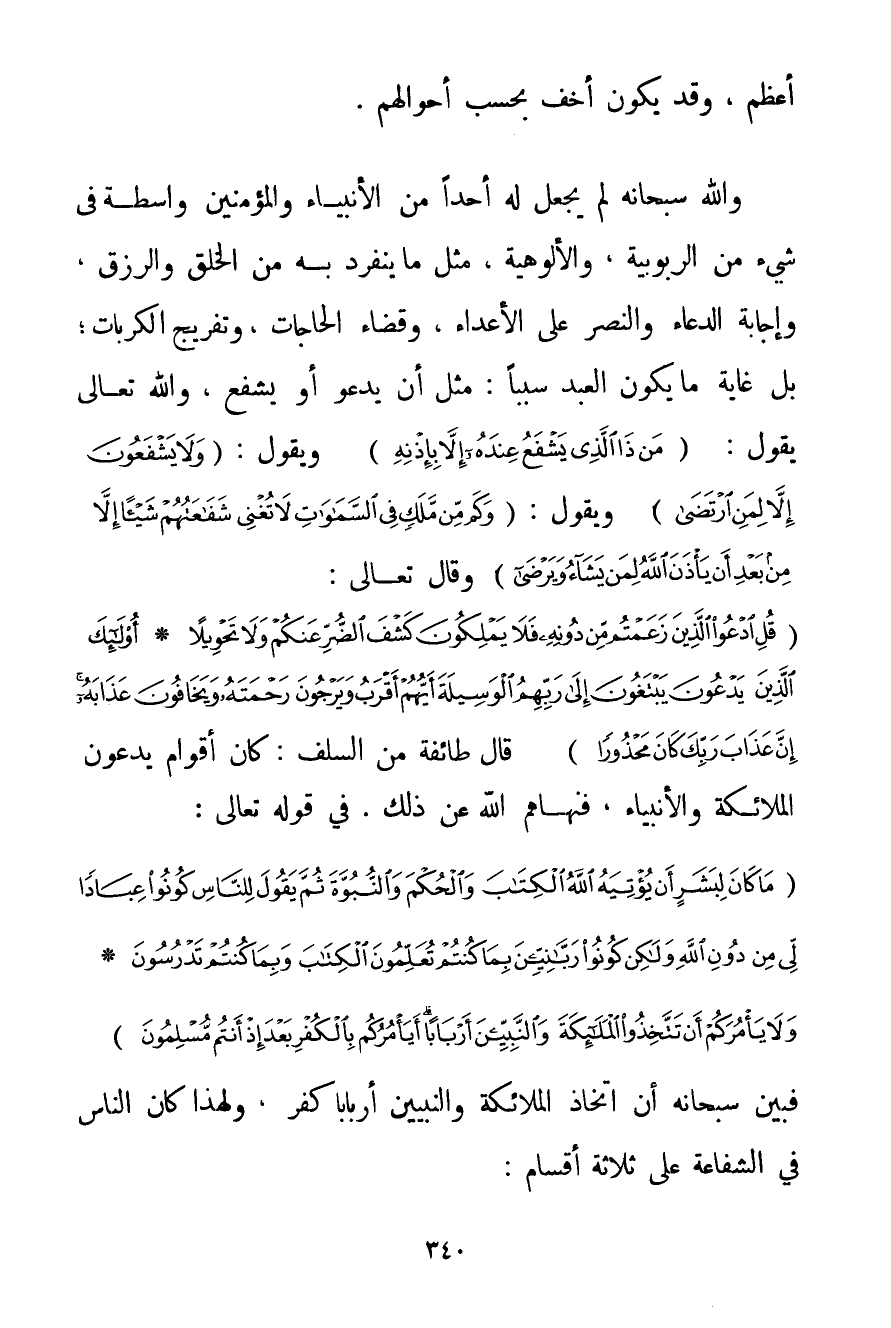 أعظم ، وقد يكون أخف بحسب أحوالهم .
والله سبحانه لم يجعل له أحداً من الأنبيـاء والمؤمنين واسطـة فى
شيء من الربوبية ، والألوهية ، مثل ما ينفرد بـه من الخلق والرزق ،
وإجابة الدعاء والنصر على الأعداء ، وقضاء الحاجات ، وتفريج الكربات ؛
بل غاية ما يكون العبد سبباً : مثل أن يدعو أو يشفع ، والله تعـالى
يقول : ( مَن ذَا ٱلَّذِى يَشْفَعُ عِندَهُۥٓ إِلَّا بِإِذْنِهِ ) ويقول : ( وَلَا يَشْفَعُونَ
إِلَّا لِمَنِ ٱرْتَضَىٰ ) ويقول : ( وَكَم مِّن مَّلَكٍ فِى ٱلسَّمَٰوَٰتِ لَا تُغْنِى شَفَٰعَتُهُمْ شَيْـًٔا إِلَّا
مِنۢ بَعْدِ أَن يَأْذَنَ ٱللَّهُ لِمَن يَشَآءُ وَيَرْضَىٰٓ ) وقال تعـالى :
( قُلِ ٱدْعُوا۟ ٱلَّذِينَ زَعَمْتُم مِّن دُونِهِۦ فَلَا يَمْلِكُونَ كَشْفَ ٱلضُّرِّ عَنكُمْ وَلَا تَحْوِيلًا * أُو۟لَٰٓئِكَ
ٱلَّذِينَ يَدْعُونَ يَبْتَغُونَ إِلَىٰ رَبِّهِمُ ٱلْوَسِيلَةَ أَيُّهُمْ أَقْرَبُ وَيَرْجُونَ رَحْمَتَهُۥ وَيَخَافُونَ عَذَابَهُۥٓ ۚ
إِنَّ عَذَابَ رَبِّكَ كَانَ مَحْذُورًا ) قال طائفة من السلف : كان أقوام يدعون
الملائـكة والأنبياء ، فنهـاهم الله عن ذلك . في قوله تعالى :
( مَا كَانَ لِبَشَرٍ أَن يُؤْتِيَهُ ٱللَّهُ ٱلْكِتَٰبَ وَٱلْحُكْمَ وَٱلنُّبُوَّةَ ثُمَّ يَقُولَ لِلنَّاسِ كُونُوا۟ عِبَادًا
لِّى مِن دُونِ ٱللَّهِ وَلَٰكِن كُونُوا۟ رَبَّٰنِيِّـۧنَ بِمَا كُنتُمْ تُعَلِّمُونَ ٱلْكِتَٰبَ وَبِمَا كُنتُمْ تَدْرُسُونَ *
وَلَا يَأْمُرَكُمْ أَن تَتَّخِذُوا۟ ٱلْمَلَٰٓئِكَةَ وَٱلنَّبِيِّـۧنَ أَرْبَابًا ۗ أَيَأْمُرُكُم بِٱلْكُفْرِ بَعْدَ إِذْ أَنتُم مُّسْلِمُونَ )
فبين سبحانه أن اتخاذ الملائكة والنبيين أربابا كفر ، ولهذا كان الناس
في الشفاعة على ثلاثة أقسام :
٣٤٠